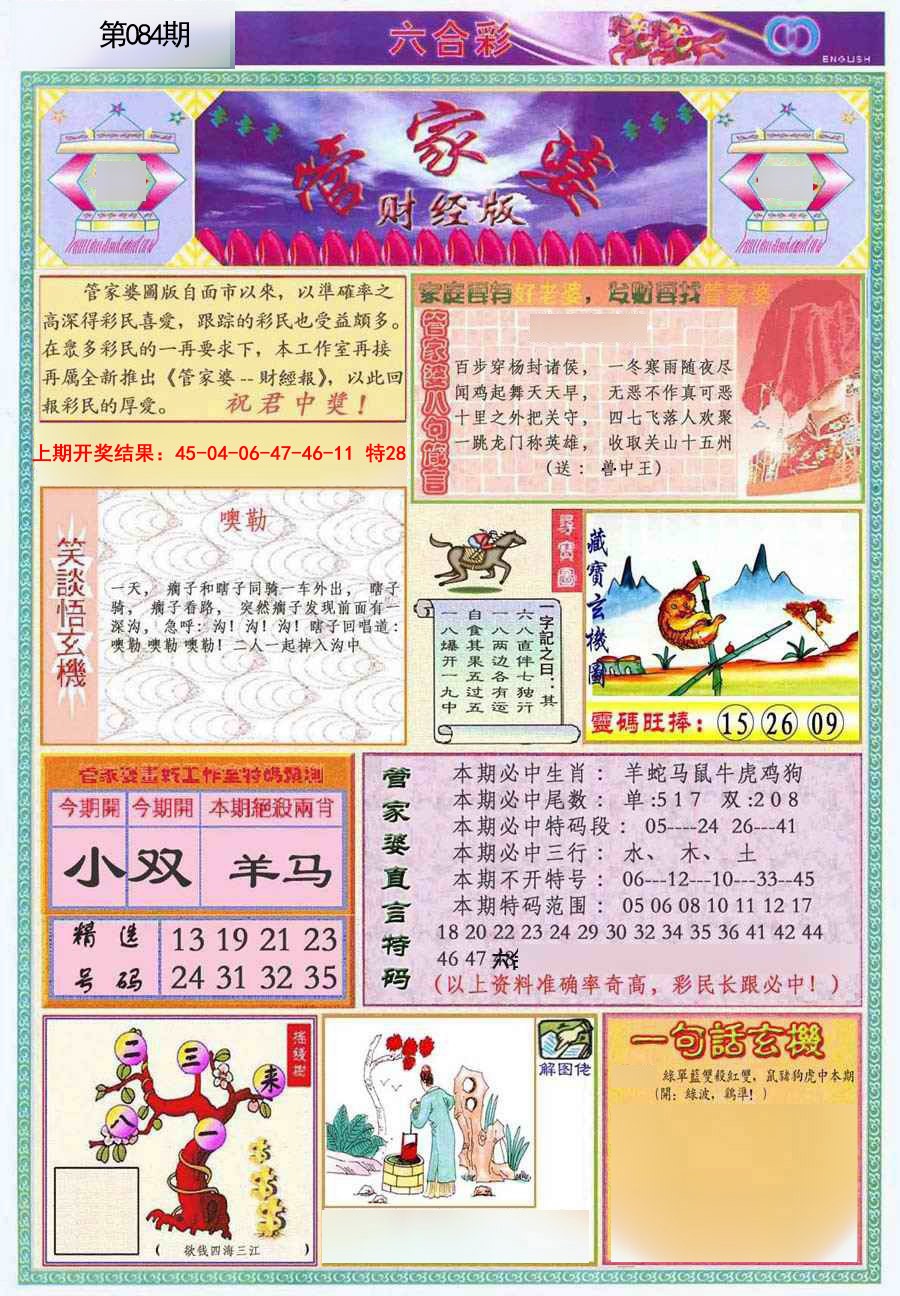 第084期
六合彩
ENGLISH
管家婆
财经版
管家婆圖版自面市以來，以準確率之
高深得彩民喜愛，跟踪的彩民也受益頗多。
在衆多彩民的一再要求下，本工作室再接
再厲全新推出《管家婆--財經報》，以此回
報彩民的厚愛。 祝君中獎！
上期开奖结果：45-04-06-47-46-11 特28
家庭要有好老婆，发财要找管家婆
管家婆八句箴言
百步穿杨封诸侯， 一冬寒雨随夜尽
闻鸡起舞天天早， 无恶不作真可恶
十里之外把关守， 四七飞落人欢聚
一跳龙门称英雄， 收取关山十五州
(送： 兽中王)
笑談悟玄機
噢勒
一天， 瘸子和瞎子同骑一车外出， 瞎子
骑， 瘸子看路， 突然瘸子发现前面有一
深沟，急呼：沟！沟！沟！瞎子回唱道：
噢勒噢勒噢勒！二人一起掉入沟中
一字記之曰：其
六八直伴七独行
一八两边各有运
自食其果五过五
一八爆开一九中
尋寶圖
藏寶玄機圖
靈碼旺捧：15 26 09
管家婆畫報工作室特碼預測
今期開 今期開 本期絕殺兩肖
小 双 羊马
精选 13 19 21 23
号码 24 31 32 35
管家婆直言特码
本期必中生肖： 羊蛇马鼠牛虎鸡狗
本期必中尾数： 单:517 双:208
本期必中特码段： 05----24 26---41
本期必中三行： 水、 木、 土
本期不开特号： 06---12---10---33--45
本期特码范围： 05 06 08 10 11 12 17
18 20 22 23 24 29 30 32 34 35 36 41 42 44
46 47
(以上资料准确率奇高，彩民长跟必中！)
摇錢樹
二 三 来
八 一
( 欲钱四海三江 )
解图佬
一句話玄機
綠單藍雙殺紅雙，鼠豬狗虎中本期
(開：綠波，鷄準！)